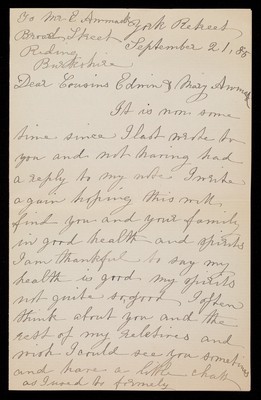 To Mr E Awmack York Retreat
Broad Street September 21, 85
Reding
Barkshire
Dear Cousins Edwin & Mary Awmack
It is now some
time since I last wrote to
you and not having had
a reply to my note I write
again hoping this will
find you and your family
in good health and spirits
I am thankful to say my
health is good my spirits
not quite so good I often
think about you and the
rest of my reletives and
wish I could see you sometimes
and have a little chatt
as I used to formely